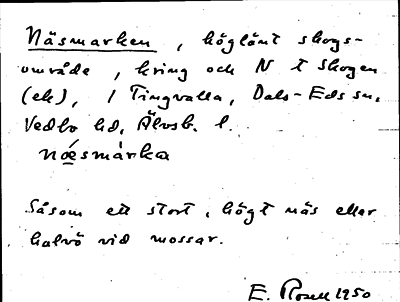 Näsmarken, höglänt skogs-
område, kring och N t Skogen
(ek), / Tingvalla, Dals-Eds sn,
Vedbo hd, Älvsb. l.
næ̀smárka
Såsom ett stort, högt näs eller
halvö vid mossar.
E. Rosell 1950